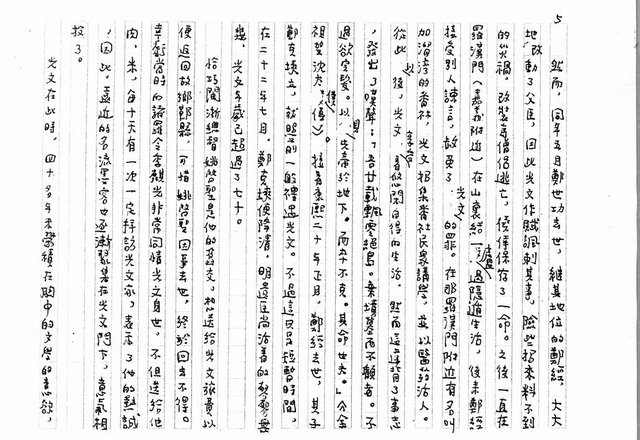 5
然而，同年五月鄭世功去世，繼其地位的鄭經，大大
地改動了父臣，因此光文作賦諷刺其事，險些招來料不到
的災禍。改裝為僧侶逃亡，僥倖保存了一命。之後一直在
羅漢門（嘉義附近）在山裏結廬，過隱遁生活，後來鄭經
接受別人諫言，赦免了光文的罪。在那羅漢門附近有名叫
加溜灣的番社，光文招集番社民眾講學，並以醫藥活人。
從此以後，光文享有悠閒自得的生活，然而這違背了素志
，發出了嘆聲：「吾廿載飄零絕島。棄墳墓而不顧者。不
過欲完髮。以見先帝於地下。而卒不克。其命也夫。」（全
祖望沈太僕傳）。接着康熙二十年正月，鄭經去世，其子
鄭克塽立，就照先前一般禮遇光文。不過這只是短暫時間，
在二十二年七月，鄭克塽便降清，明遺臣尚活着的寥寥無
幾，光文年歲已超過了七十。
恰巧閩浙總督姚啓聖是他的舊交，相送給光文旅費以
便返回故鄉鄞縣，可惜姚啓聖因事去世，終於回去不得。
幸虧當時的諸羅令李麒光非常同情光文身世，不但送給他
肉、米，每十天有一次一定拜訪光文家，表示了他的熱誠
，因此，遠近的名流墨客也逐漸聚集在光文門下，意氣相
投了。
光文在此時，四十多年未嘗續在閩中的文學的意欲，